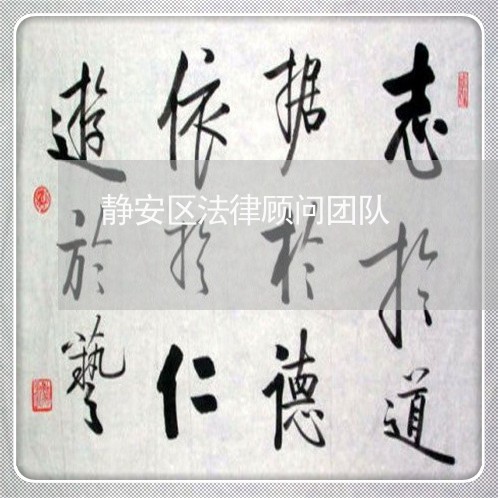 志於道
据於德
依於仁
遊於藝
静安区法律顾问团队